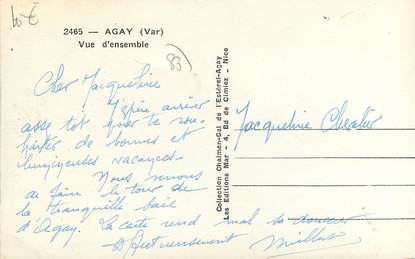 10 €
2465 — AGAY (Var)
Vue d'ensemble
83
Cher Jacqueline
J'espère arriver
assez tot pour te sou-
haiter de bonnes et
lumineuses vacances.
Nous venons
de faire le tour de
la tranquille baie
d'Agay. La carte rend mal sa douceur
Affectueusement
Jacqueline Chevalier
Collection Chalman-Gal de l'Estérel-Agay
Les Editions Mar - 4, Bd de Cimiez - Nice